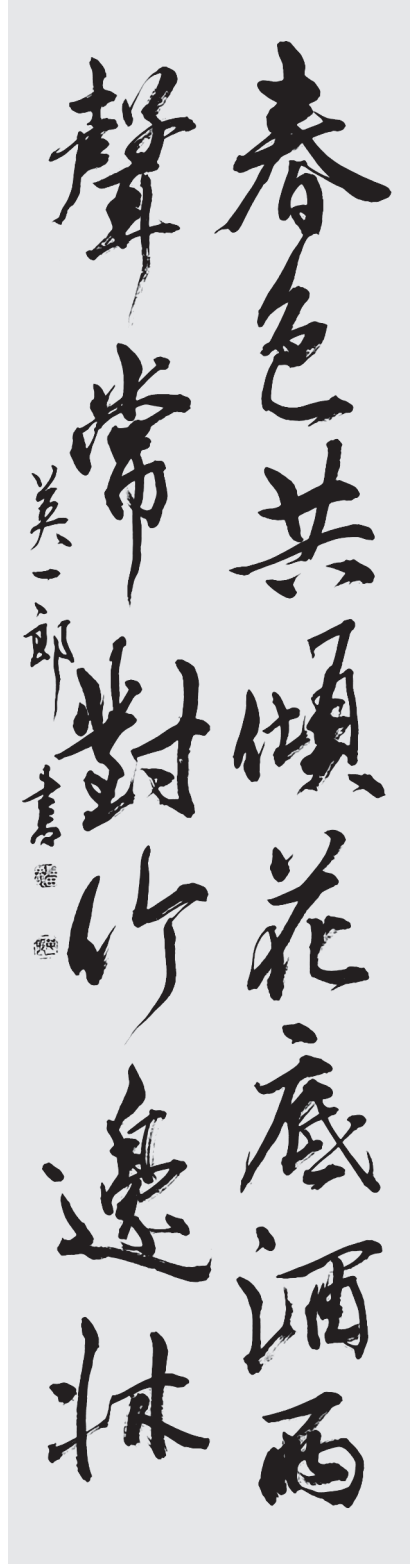 春色共傾花底酒雨
聲常對竹邊牀
英一郎書